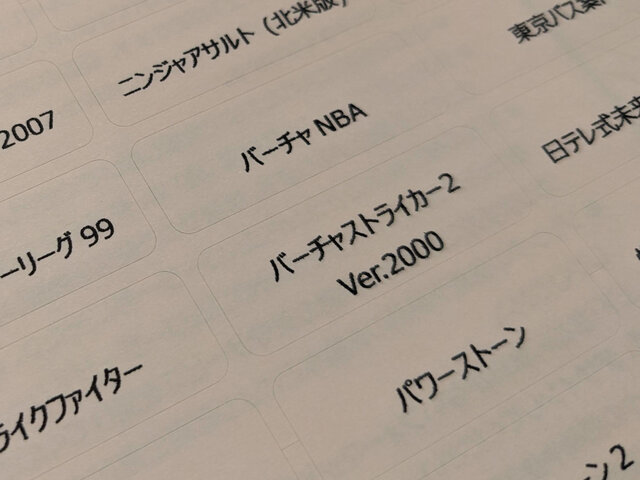 ニンジャアサルト（北米版）
東京バス案
2007
バーチャ NBA
日テレ式未来
ーリーグ 99
バーチャストライカー2
Ver.2000
ライクファイター
パワーストーン
ーン2